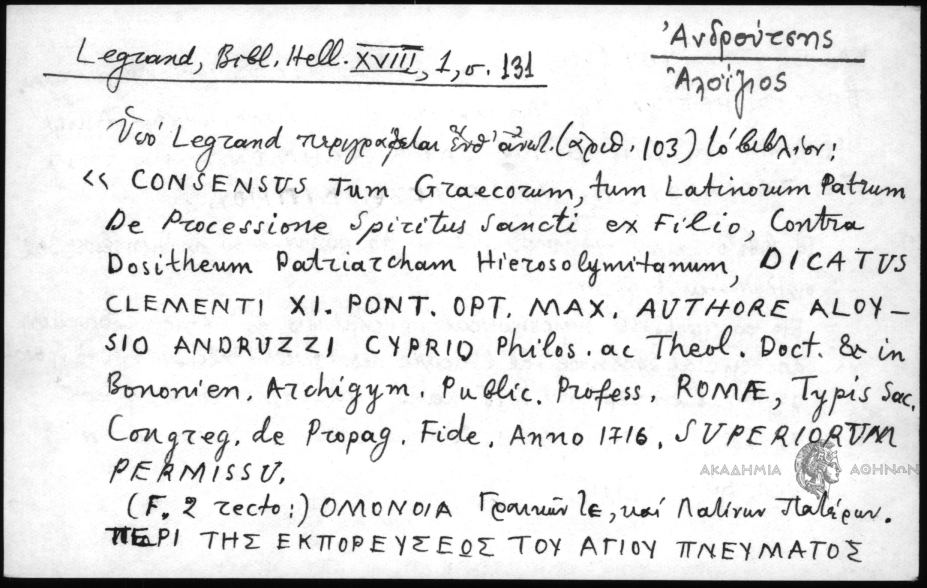 Legrand, Bibl. Hell. XVIII, 1, σ. 131
Ἀνδρούτσης
Ἀλοΐζιος
Ὑπό Legrand περιγράφεται ἔνθ' ἀνωτ. (ἀριθ. 103) τό βιβλίον:
« CONSENSUS Tum Graecorum, tum Latinorum Patrum
De Processione Spiritus Sancti ex Filio, Contra
Dositheum Patriarcham Hierosolymitanum, DICATUS
CLEMENTI XI. PONT. OPT. MAX. AUTHORE ALOY-
SIO ANDRUZZI CYPRIO Philos. ac Theol. Doct. & in
Bononien. Archigym. Public. Profess. ROMÆ, Typis Sac.
Congreg. de Propag. Fide. Anno 1716. SUPERIORUM
PERMISSU.
ΑΚΑΔΗΜΙΑ ΑΘΗΝΩΝ
(F. 2 recto:) ΟΜΟΝΟΙΑ Γραικῶν τε, καί Λατίνων Πατέρων.
ΠΕΡΙ ΤΗΣ ΕΚΠΟΡΕΥΣΕΩΣ ΤΟΥ ΑΓΙΟΥ ΠΝΕΥΜΑΤΟΣ